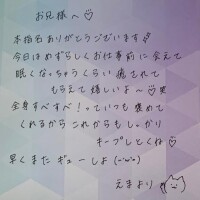 お兄様へ♡
本指名ありがとうございます
今日はめずらしくお仕事前に会えて
眠くなっちゃうくらい癒されて
もらえて嬉しいよ〜♡笑
全身すべすべ！っていつも褒めて
くれるからこれからもしっかり
キープしとくね♡
早くまたギューしよ(˙꒳˙)
えまより